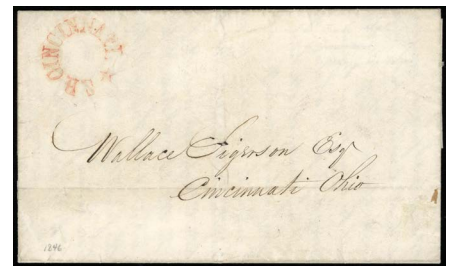 CINCINNATI
Wallace Sigerson Esq
Cincinnati Ohio
1846